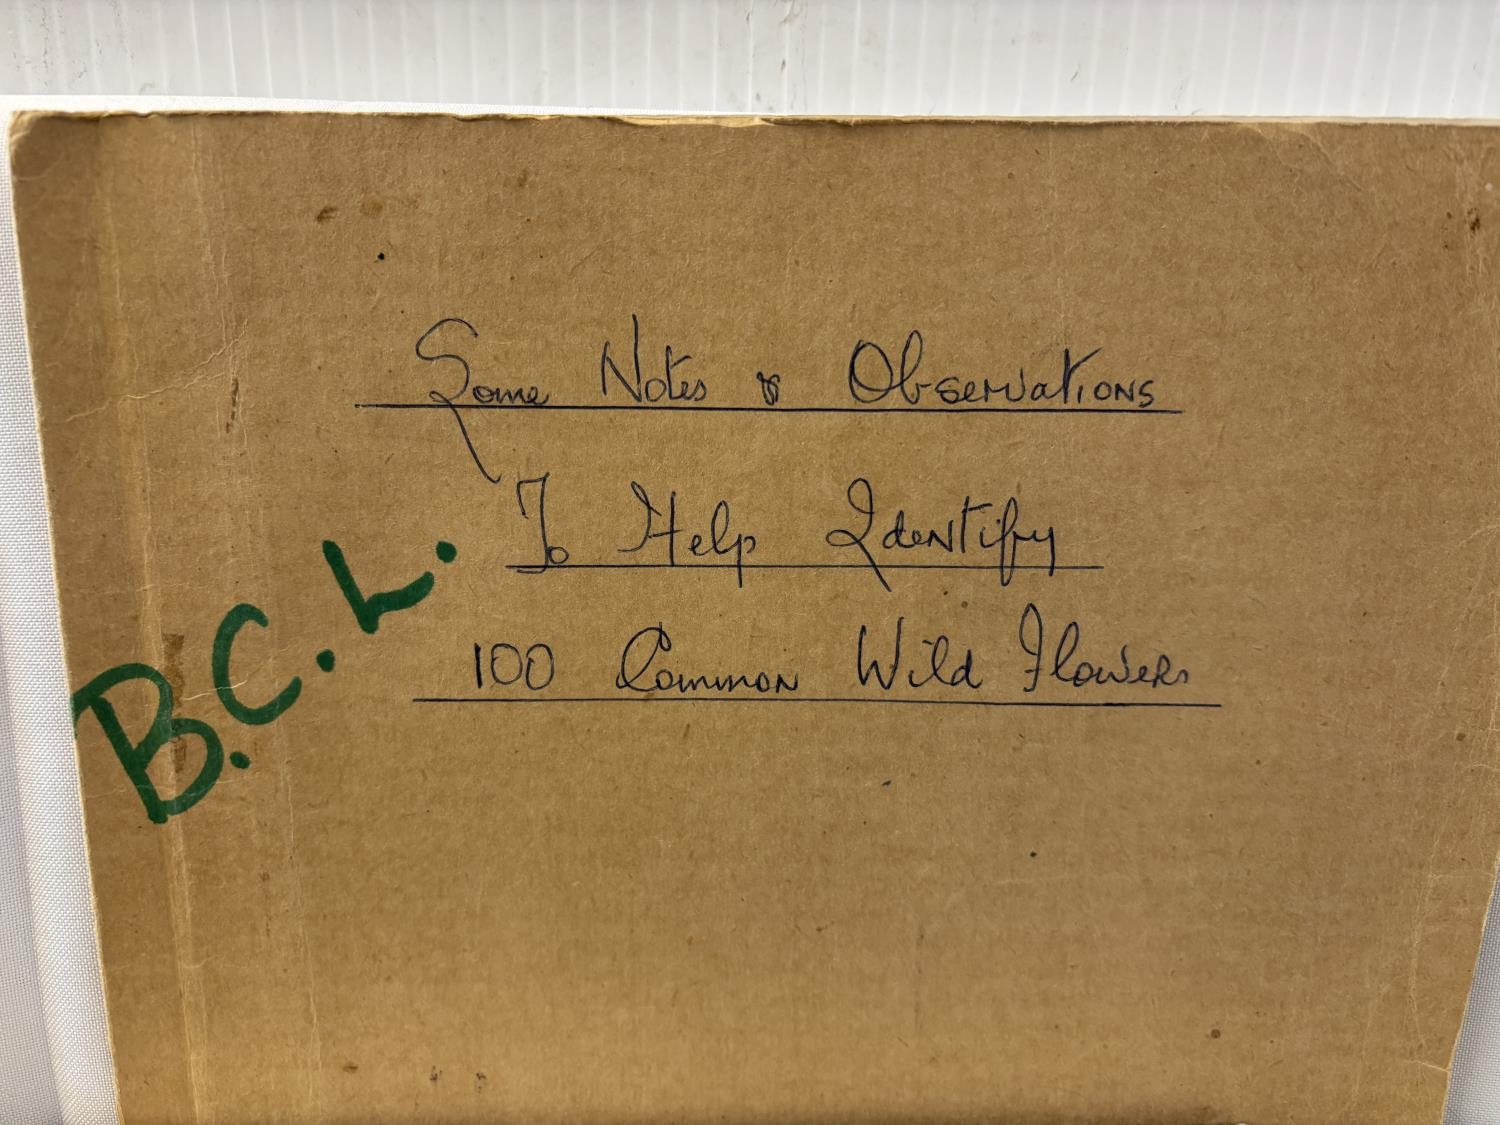 Some Notes & Observations
To Help Identify
100 Common Wild Flowers
B.C.L.